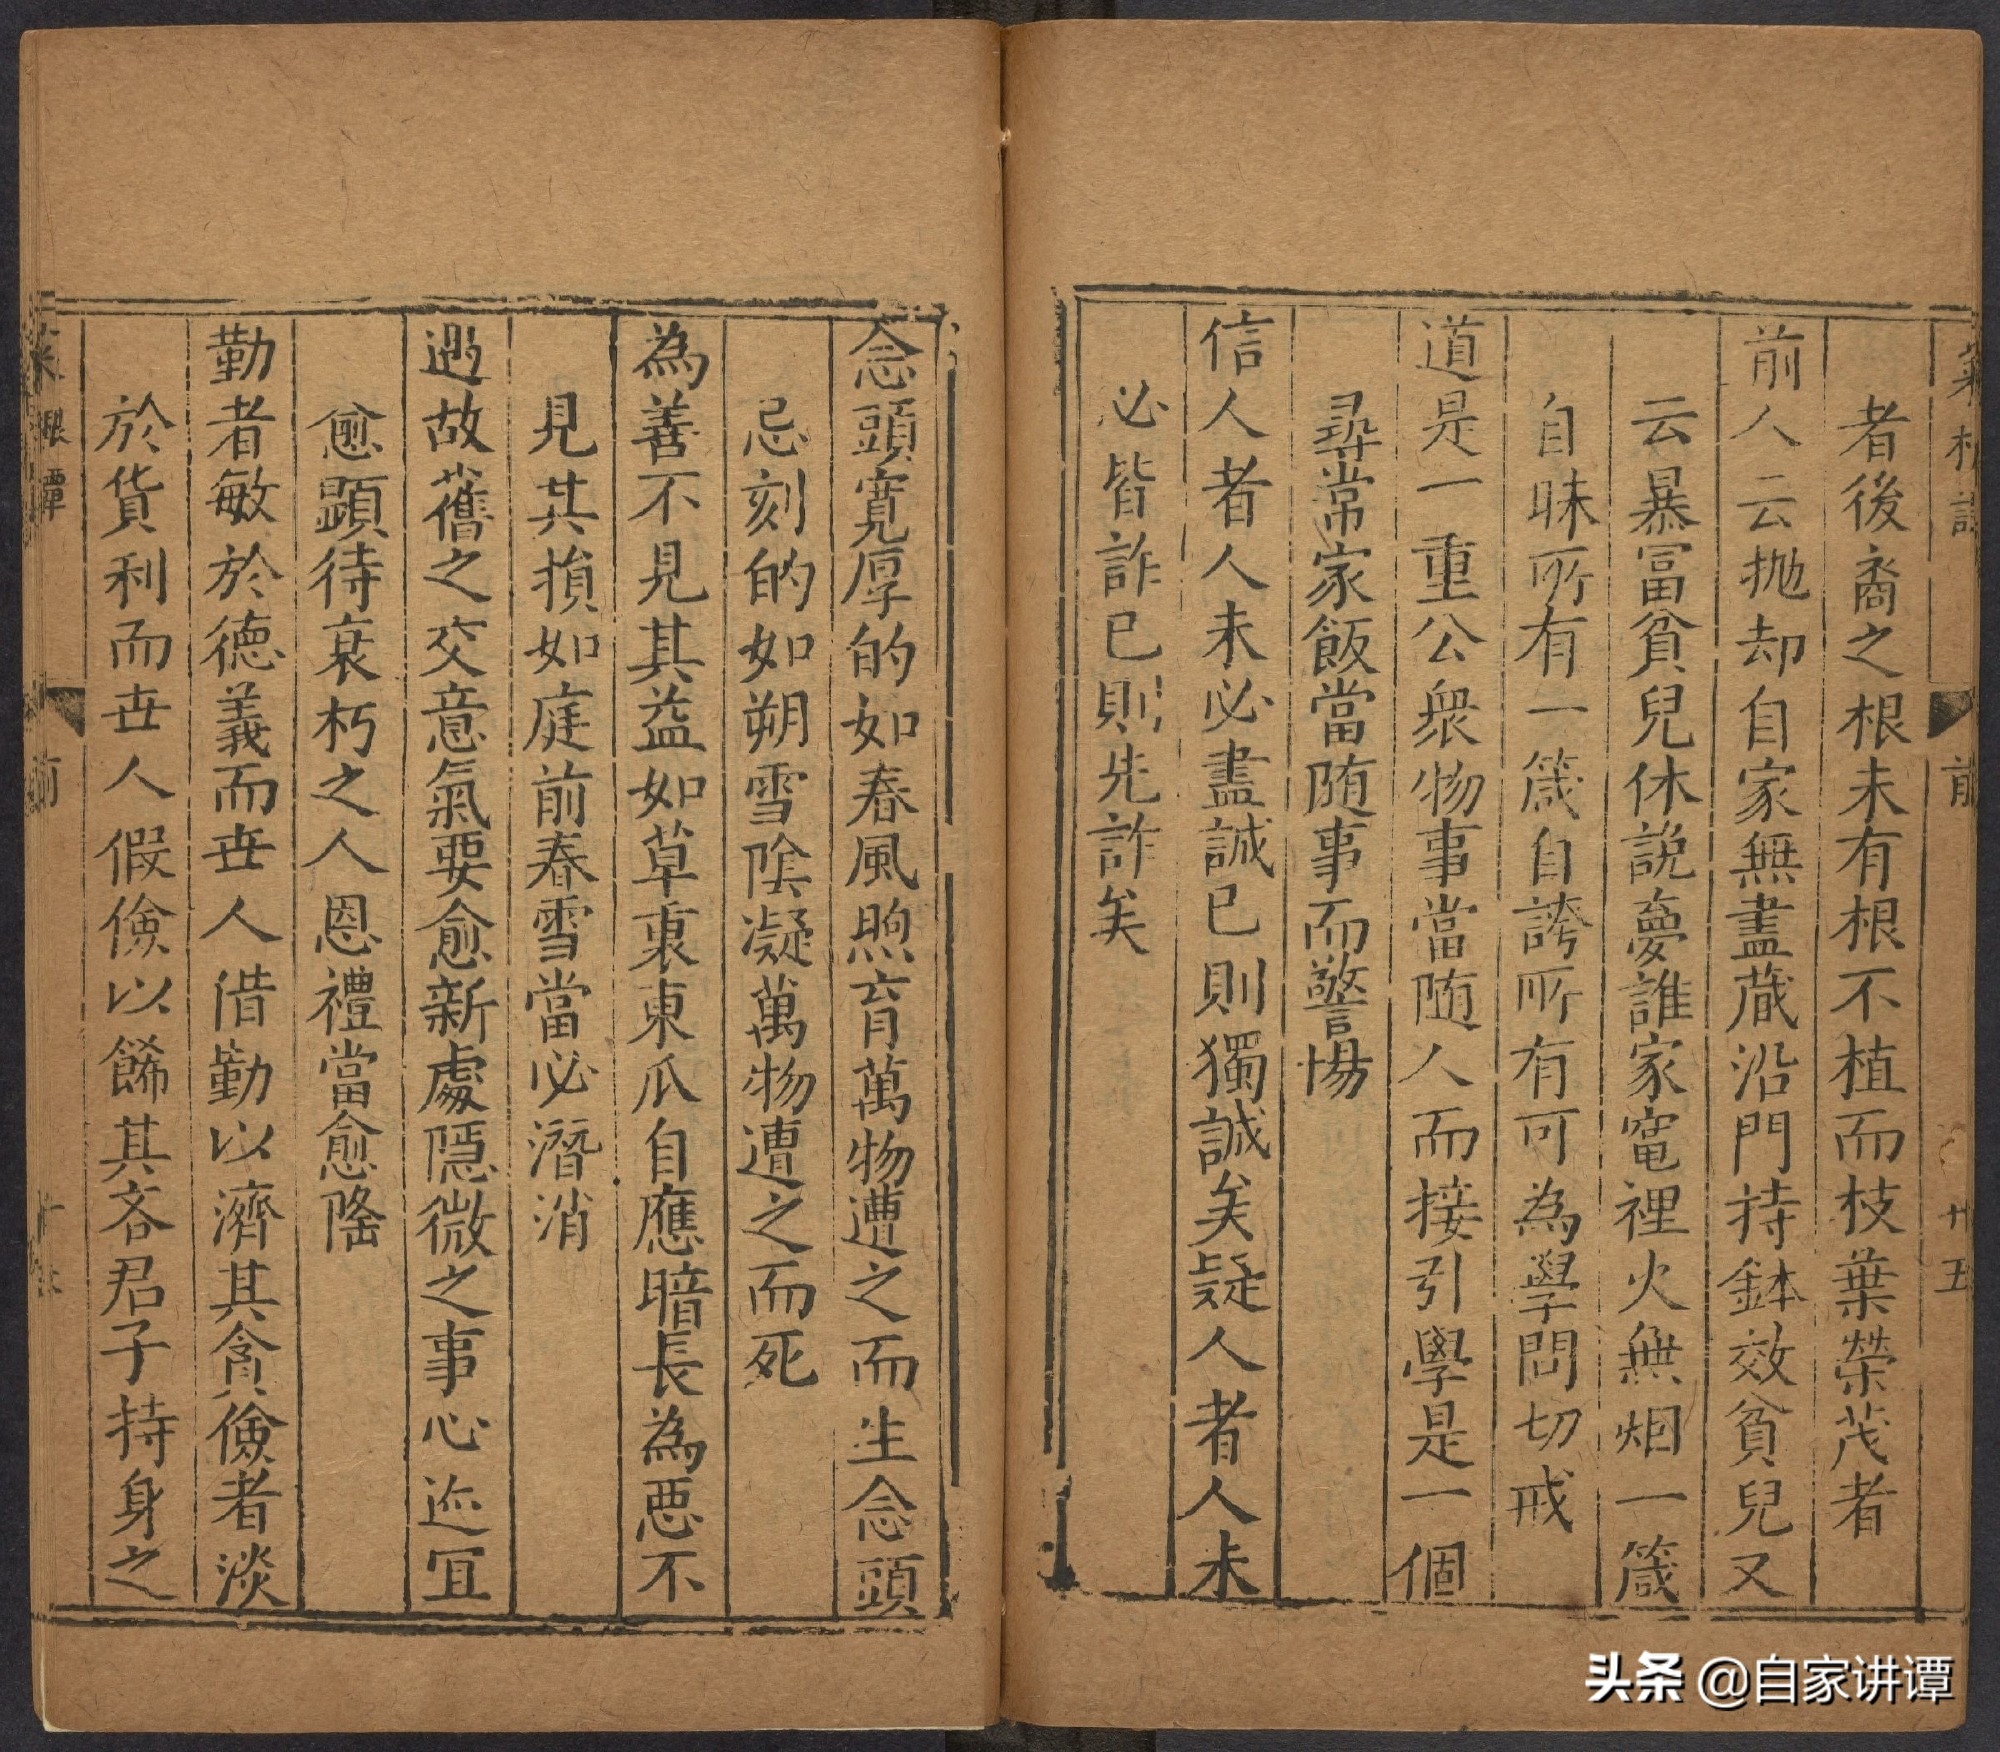 菜根譚
前
廿五
者後裔之根未有根不植而枝葉榮茂者
前人云抛却自家無盡蔵沿門持鉢效貧兒又
云暴冨貧兒休說夢誰家竃裡火無烟一箴
自昧所有一箴自誇所有可為學問切戒
道是一重公衆物事當随人而接引學是一個
尋常家飯當随事而警惕
信人者人未必盡誠已則獨誠矣疑人者人未
必皆詐已則先詐矣
念頭寛厚的如春風煦育萬物遭之而生念頭
忌刻的如朔雪陰凝萬物遭之而死
為善不見其益如草裏東瓜自應暗長為惡不
見其損如庭前春雪當必潛消
遇故舊之交意氣要愈新處隱微之事心迹宜
愈顕待衰朽之人恩禮當愈隆
勤者敏於德義而世人借勤以濟其貪儉者淡
於貨利而世人假儉以餙其吝君子持身之
菜根譚
前
头条 @自家讲谭